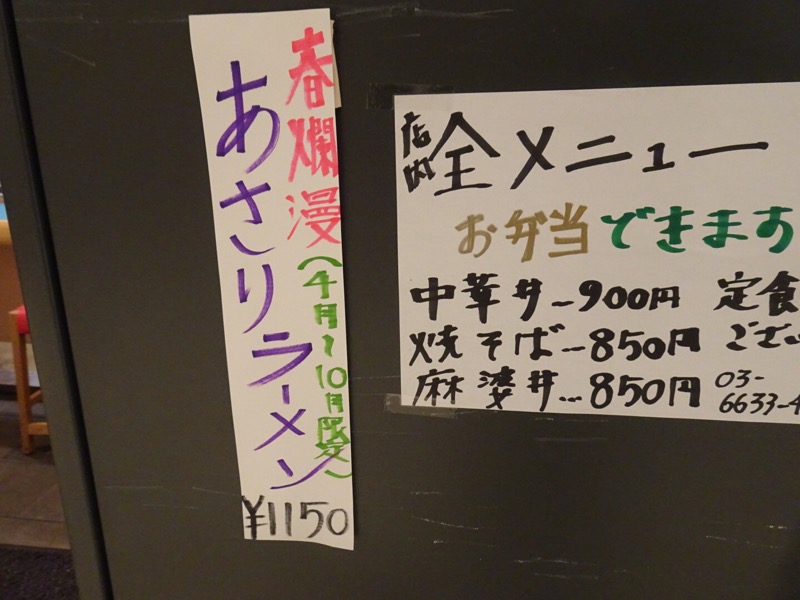 春爛漫
(4月~10月限定)
あさりラーメン
¥1150
店内全メニュー
お弁当できます
中華丼…900円 定食
焼そば…850円 ござい
麻婆丼…850円 03-
6633-4